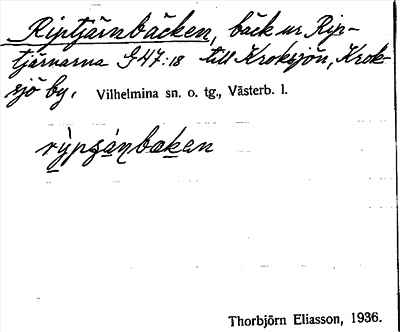 Riptjärnbäcken, bäck ur Rip-
tjärnarna G47:18 till Kroksjön, Krok-
sjö by, Vilhelmina sn. o. tg., Västerb. l.
Thorbjörn Eliasson, 1936.